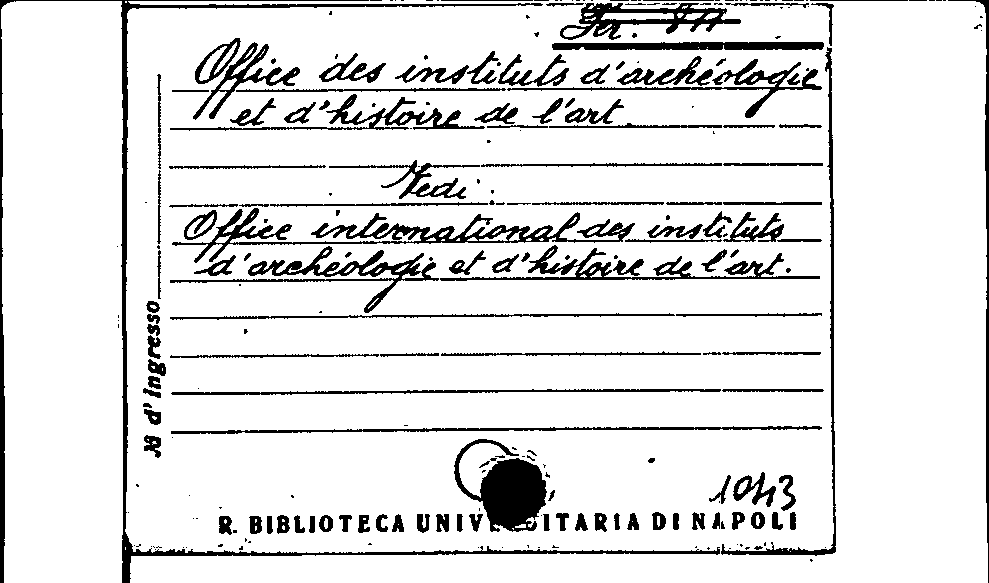 Office des instituts d'archéologie
et d'histoire de l'art.
Vedi:
Office international des instituts
d'archéologie et d'histoire de l'art.
№ d'Ingresso
1043
R. BIBLIOTECA UNIVERSITARIA DI NAPOLI